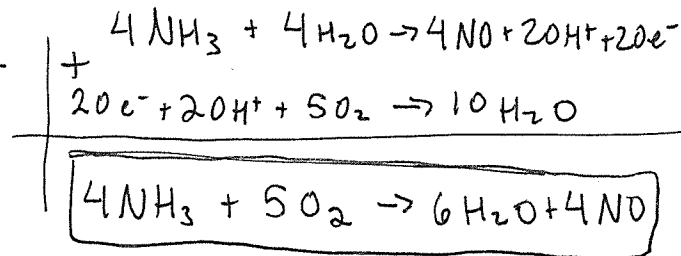 4 NH₃ + 4 H₂O → 4 NO + 20H⁺ + 20e⁻
+
20 e⁻ + 20H⁺ + 5O₂ → 10 H₂O
4NH₃ + 5O₂ → 6H₂O + 4NO